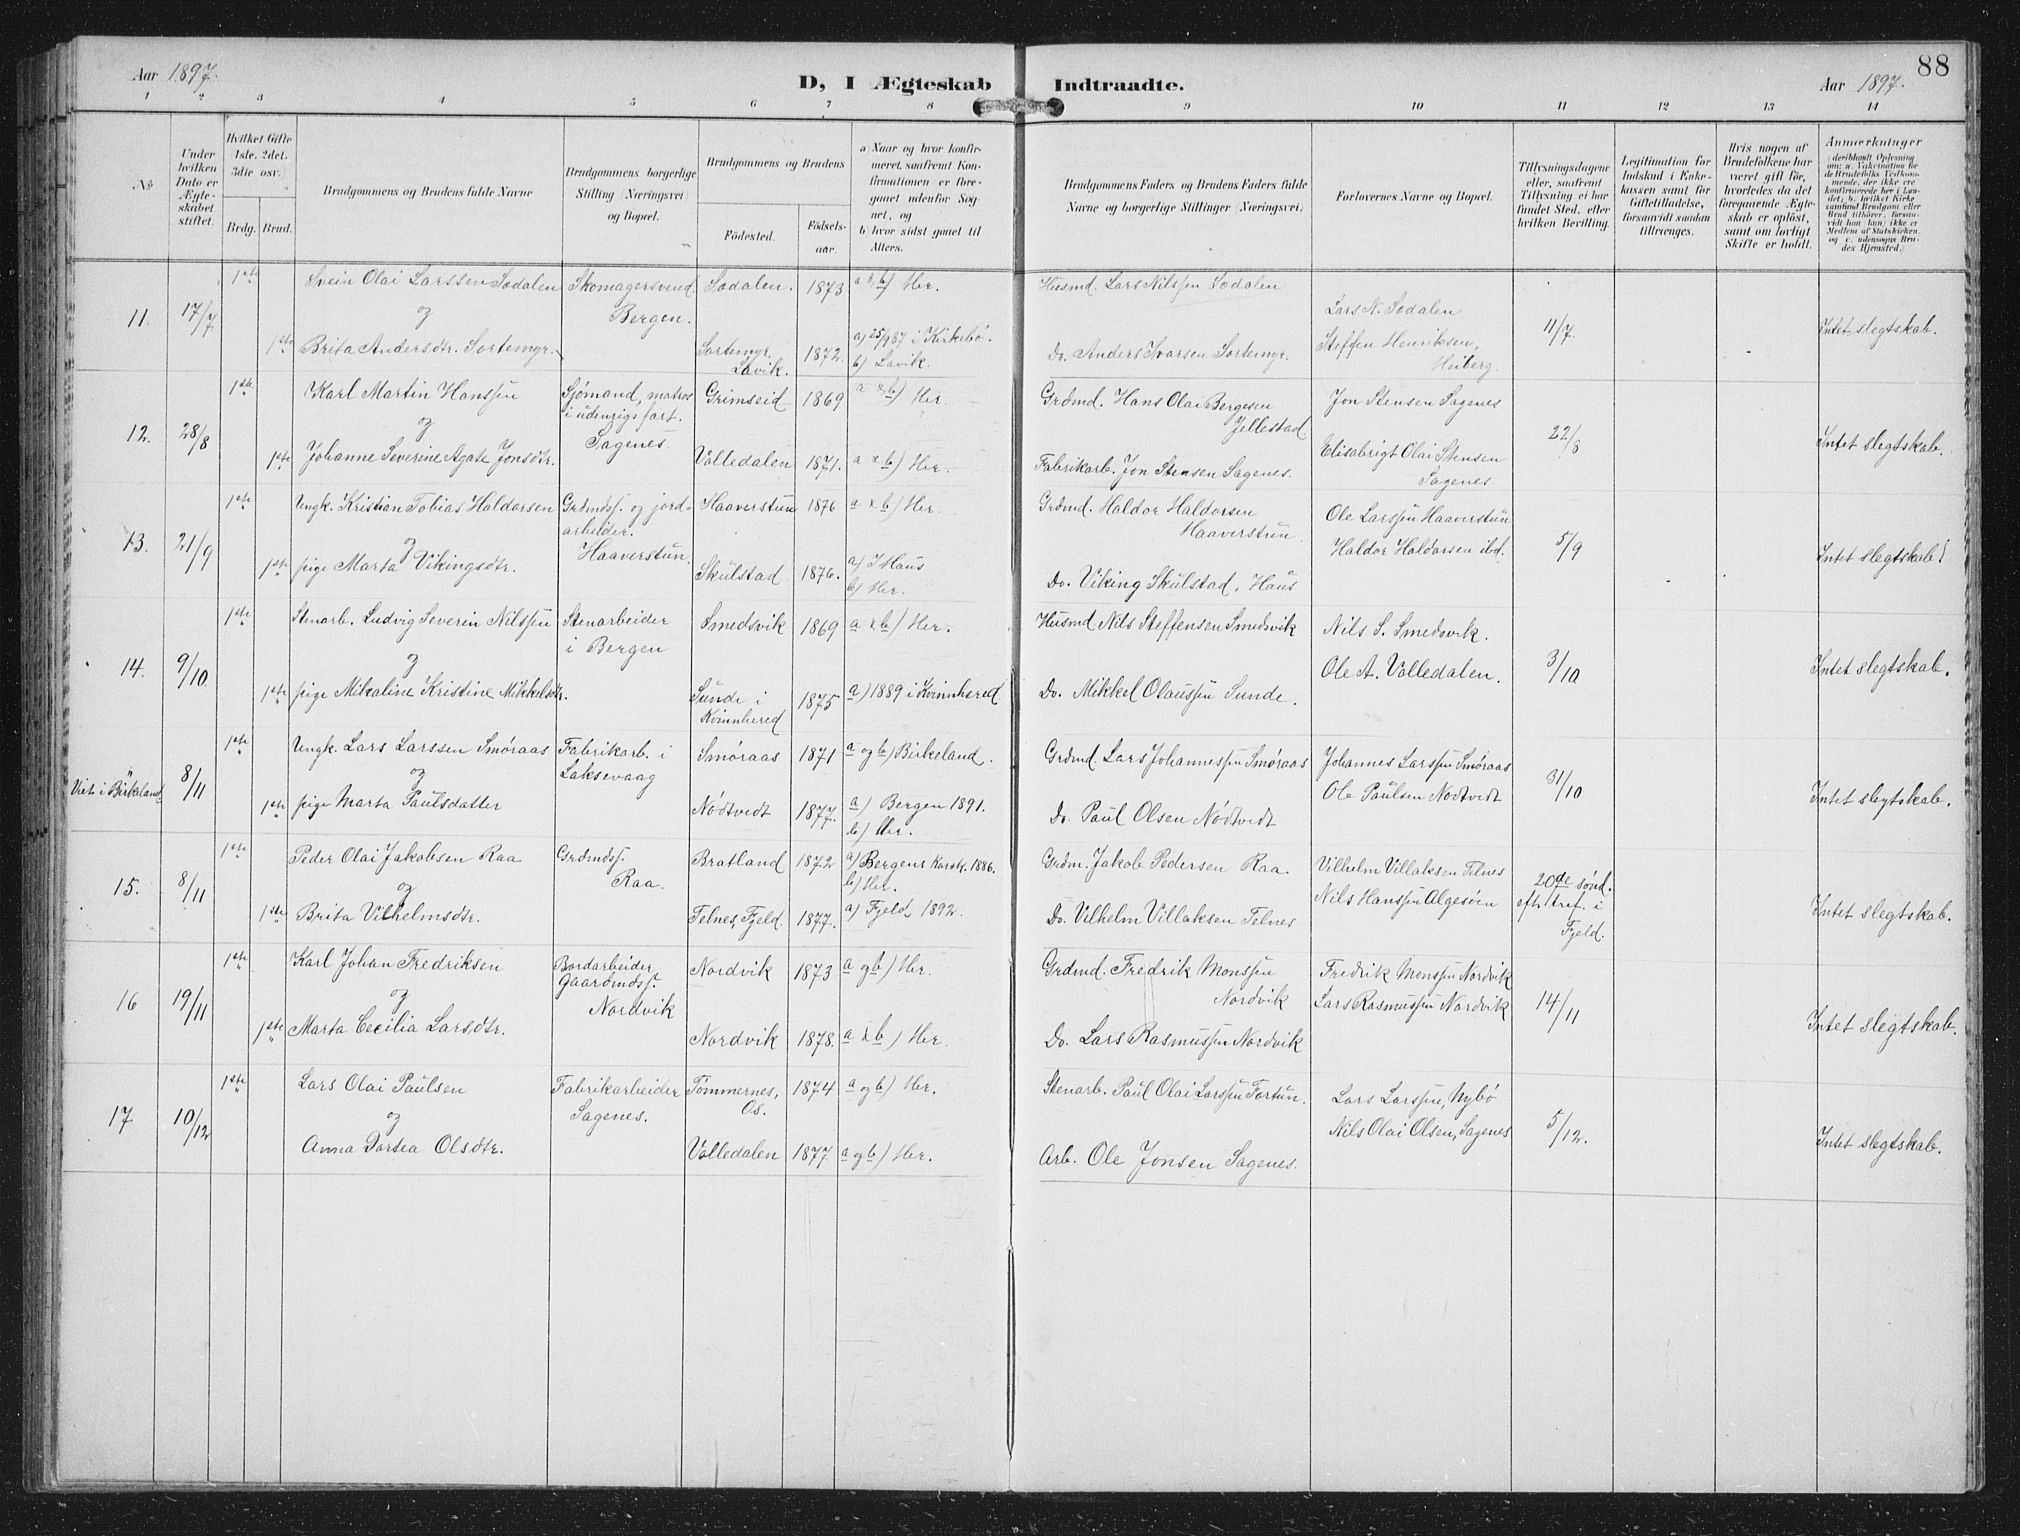 88
Aar 1897.
D, I Ægteskab Indtraadte.
Aar 1897.
1 2 3 4 5 6 7 8 9 10 11 12 13 14
No
Under hvilken Dato er Ægteskabet stiftet
Hvilket Gifte 1ste. 2det. 3die osv.
Brdg. Brud.
Brudgommens og Brudens fulde Navne
Brudgommens borgerlige Stilling (Næringsvei) og Bopæl.
Brudgommens og Brudens
Födested.
Födselsaar.
a) Naar og hvor konfirmeret, saafremt Konfirmationen er foregaaet udenfor Sognet, og
b) hvor sidst gaaet til Alters.
Brudgommens Faders og Brudens Faders fulde Navne og borgerlige Stillinger (Næringsvei)
Forlovernes Navne og Bopæl.
Tillysningsdagene eller, saafremt Tillysning ei har fundet Sted, efter hvilken Bevilling.
Legitimation for Indskud i Enkekassen samt for Giftetilladelse, forsaavidt saadan tiltrænges.
Hvis nogen af Brudefolkene har været gift för, hvorledes da det foregaaende Ægteskab er oplöst, samt om lovligt Skifte er holdt.
Anmerkninger
(deriblandt Oplysning om: a. Vakcination for de Brudefolks Vedkommende, der ikke ere konfirmerede her i Landet; b. hvilket Kirkesamfund Brudgom eller Brud tilhörer, forsaavidt han (hun) ikke er Medlem af Statskirken, og c. udensogns Brudes Hjemsted.
11. 17/7 1ste Svein Olai Larssen Sødalen Skomagersvend Bergen. Sødalen. 1873 a & b) Her. Husmd. Lars Nilssen Sødalen Lars N. Sødalen 11/7 Intet slegtskab.
og
1ste Brita Andersdtr. Sortemyr. Sortemyr. Lavik. 1872. a) 25/9 87 i Kirkebø. b) Lavik. Do. Anders Ivarsen Sortemyr. Steffen Henriksen, Heiberg.
12. 28/8 1ste Karl Martin Hanssen Sjømand, matros i udenrigs fart. Sagenes. Grimseid 1869 a & b) Her. Grdmd. Hans Olai Bergesen Jellestad Jon Stensen Sagenes 22/8 Intet slegtskab.
og
1ste Johanne Severine Agate Jonsdtr. Valledalen 1871. a & b) Her. Fabrikarb. Jon Stensen Sagenes. Elisabrigt Olai Stensen Sagenes.
13. 21/9 1ste Ungk. Kristian Tobias Haldorsen Grdmdss. og jordarbeider. Haaverstun. Haaverstun 1876 a & b) Her. Grdmd. Haldor Haldorsen Haaverstun. Ole Larssen Haaverstun 5/9 Intet slegtskab.
og
1ste pige Marta Vikingsdtr. Skulstad 1876. a) I Haus b) Her. Do. Viking Skulstad, Haus Haldor Haldorsen ibd.
14. 9/10 1ste Stenarb. Ludvig Severin Nilssen Stenarbeider i Bergen Smedsvik 1869 a & b) Her. Husmd Nils Steffensen Smedsvik Nils S. Smedsvik. 3/10 Intet slegtskab.
og
1ste pige Mikaline Kristine Mikkelsdtr. Sunde i Kvinnhered 1875 a) 1889 i Kvinnhered Do. Mikkel Olaussen Sunde. Ole A. Valledalen.
Viet i Birkeland 8/11 1ste Ungk. Lars Larssen Smøraas Fabrikarb. i Laksevaag Smøraas 1871 a og b) Birkeland. Grdmd. Lars Johannessen Smøraas Johannes Larssen Smøraas 31/10 Intet slegtskab.
og
1ste pige Marta Paulsdatter Nødtvedt 1877. a) Bergen 1891. b) Her. Do. Paul Olsen Nødtvedt Ole Paulsen Nødtvedt
15. 8/11 1ste Peder Olai Jakobsen Raa Grdmdss. Raa. Bratland 1872 a) Bergens Korsk. 1886. b) Her. Grdm. Jakob Pedersen Raa. Vilhelm Villaksen Telnes 20de sønd. eft. tref. i Fjeld. Intet slegtskab.
og
1ste Brita Vilhelmsdtr. Telnes, Fjeld. 1877. a) Fjeld 1892. Do. Vilhelm Villaksen Telnes Nils Hanssen Algesøen
16 19/11 1ste Karl Johan Fredriksen Bordarbeider Gaardmdss. Nordvik Nordvik 1873 a og b) Her. Grdmd. Fredrik Monssen Nordvik Fredrik Monssen Nordvik 14/11 Intet slegtskab.
og
1ste Marta Cecilia Larsdtr. Nordvik 1878. a & b) Her. Do. Lars Rasmussen Nordvik Lars Rasmussen Nordvik
17 10/12 1ste Lars Olai Paulsen Fabrikarbeider Sagenes. Tømmernes, Os. 1874 a og b) Her. Stenarb. Paul Olai Larssen Fortun. Lars Larssen, Nybø 5/12. Intet slegtskab.
og
Anna Dortea Olsdtr. Valledalen 1877 a og b) Her. Arb. Ole Jonsen Sagenes. Nils Olai Olsen, Sagenes